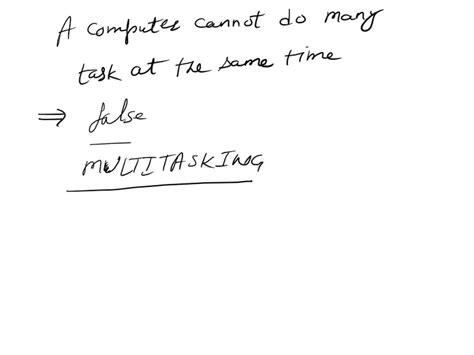 A computer cannot do many
task at the same time
⇒ false
MULTITASKING